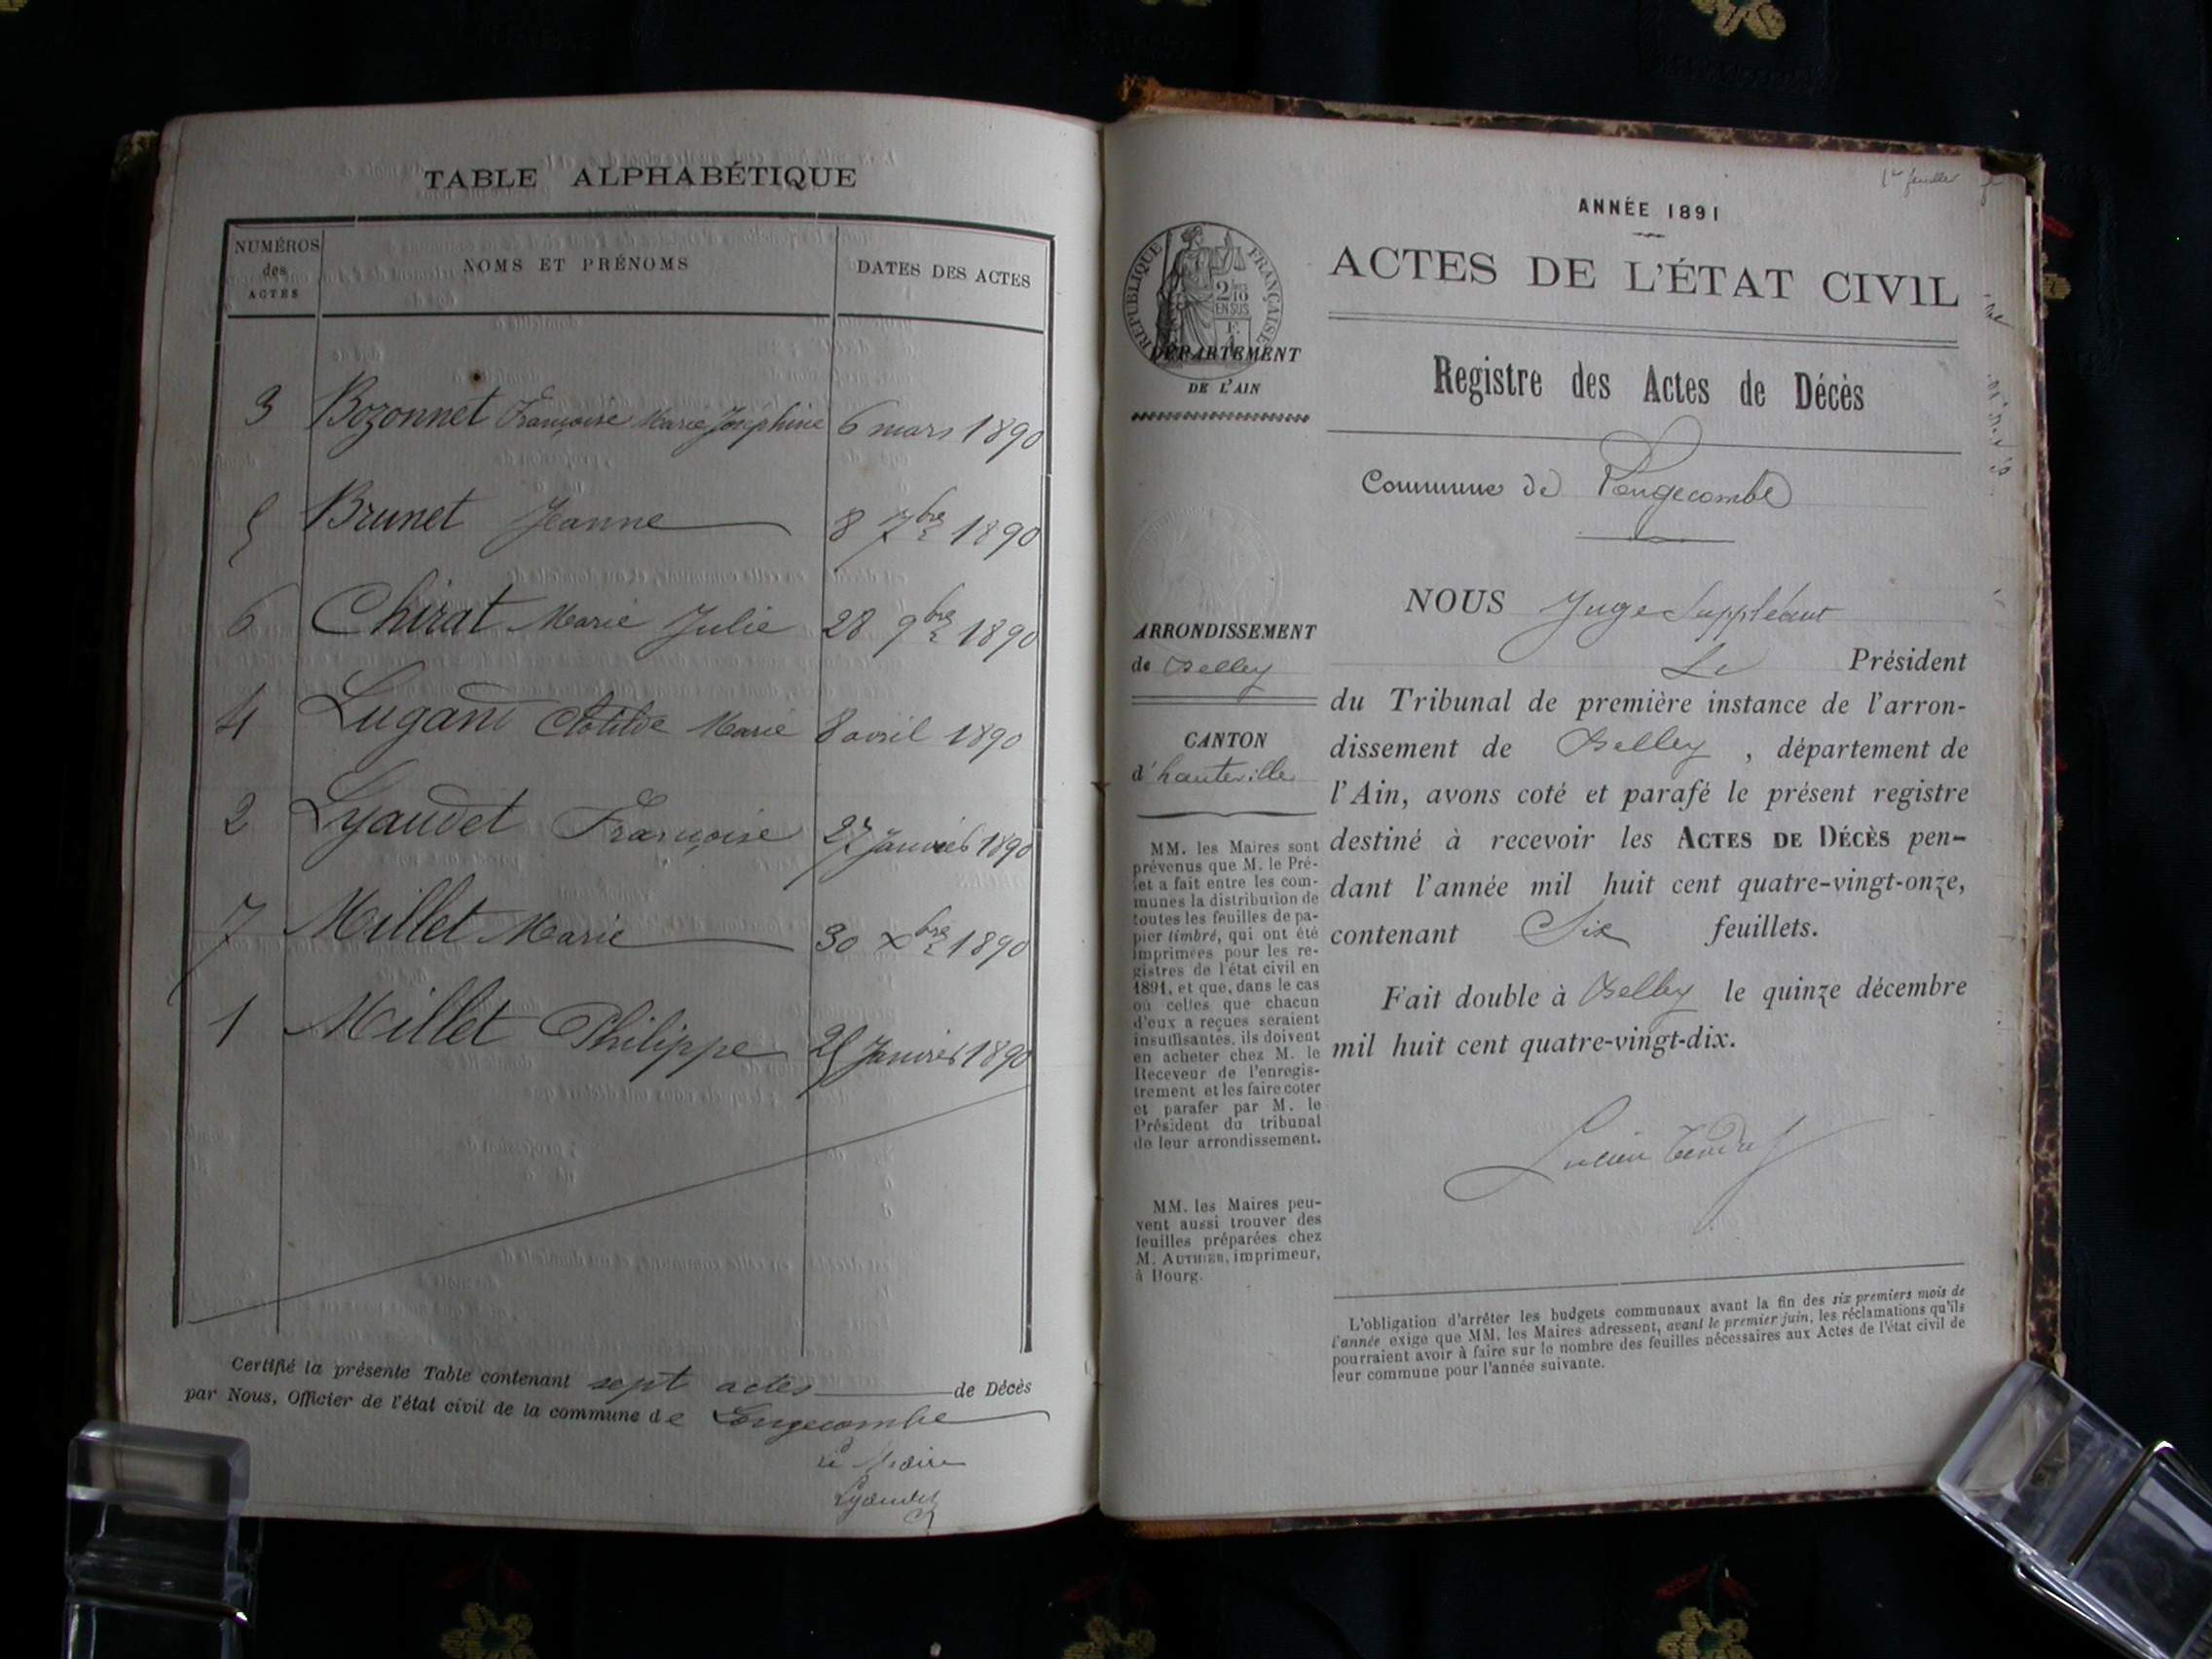 TABLE ALPHABÉTIQUE
NUMÉROS des ACTES
NOMS ET PRÉNOMS
DATES DES ACTES
3 Bozonnet Françoise Marie Joséphine 6 mars 1890
5 Brunet Jeanne 8 7bre 1890
6 Chirat Marie Julie 28 9bre 1890
4 Lugand Clotilde Marie 8 avril 1890
2 Lyaudet Françoise 27 Janvier 1890
7 Millet Marie 30 Xbre 1890
1 Millet Philippe 25 Janvier 1890
Certifié la présente Table contenant sept actes de Décès
par Nous, Officier de l'état civil de la commune de Longecombe
Le Maire
Lyaudet
1er feuillet
ANNÉE 1891
ACTES DE L'ÉTAT CIVIL
RÉPUBLIQUE FRANÇAISE
2/10
EN SUS
DÉPARTEMENT
DE L'AIN
Registre des Actes de Décès
Commune de Longecombe
ARRONDISSEMENT
de Belley
CANTON
d'hauteville
MM. les Maires sont
prévenus que M. le Pré-
fet a fait entre les com-
munes la distribution de
toutes les feuilles de pa-
pier timbré, qui ont été
imprimées pour les re-
gistres de l'état civil en
1891, et que, dans le cas
où celles que chacun
d'eux a reçues seraient
insuffisantes, ils doivent
en acheter chez M. le
Receveur de l'enregis-
trement et les faire coter
et parafer par M. le
Président du tribunal
de leur arrondissement.
MM. les Maires peu-
vent aussi trouver des
feuilles préparées chez
M. AUTHIER, imprimeur,
à Bourg.
NOUS Juge Suppléant
Le Président
du Tribunal de première instance de l'arron-
dissement de Belley, département de
l'Ain, avons coté et parafé le présent registre
destiné à recevoir les ACTES DE DÉCÈS pen-
dant l'année mil huit cent quatre-vingt-onze,
contenant Six feuillets.
Fait double à Belley le quinze décembre
mil huit cent quatre-vingt-dix.
L'obligation d'arrêter les budgets communaux avant la fin des six premiers mois de
l'année exige que MM. les Maires adressent, avant le premier juin, les réclamations qu'ils
pourraient avoir à faire sur le nombre des feuilles nécessaires aux Actes de l'état civil de
leur commune pour l'année suivante.